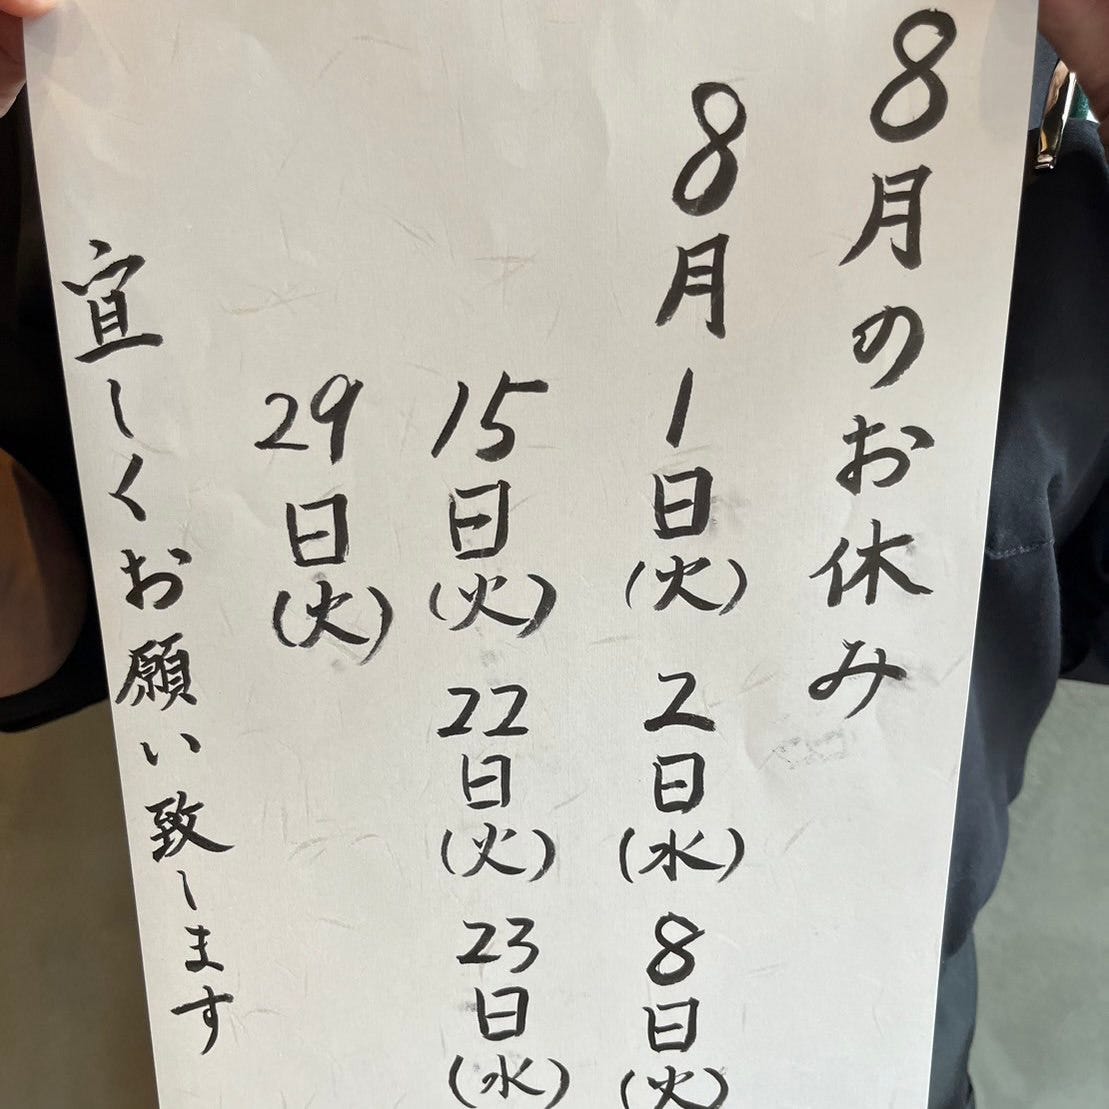 8月のお休み
8月1日(火)2日(水)8日(火)
15日(火)22日(火)23日(水)
29日(火)
宜しくお願い致します